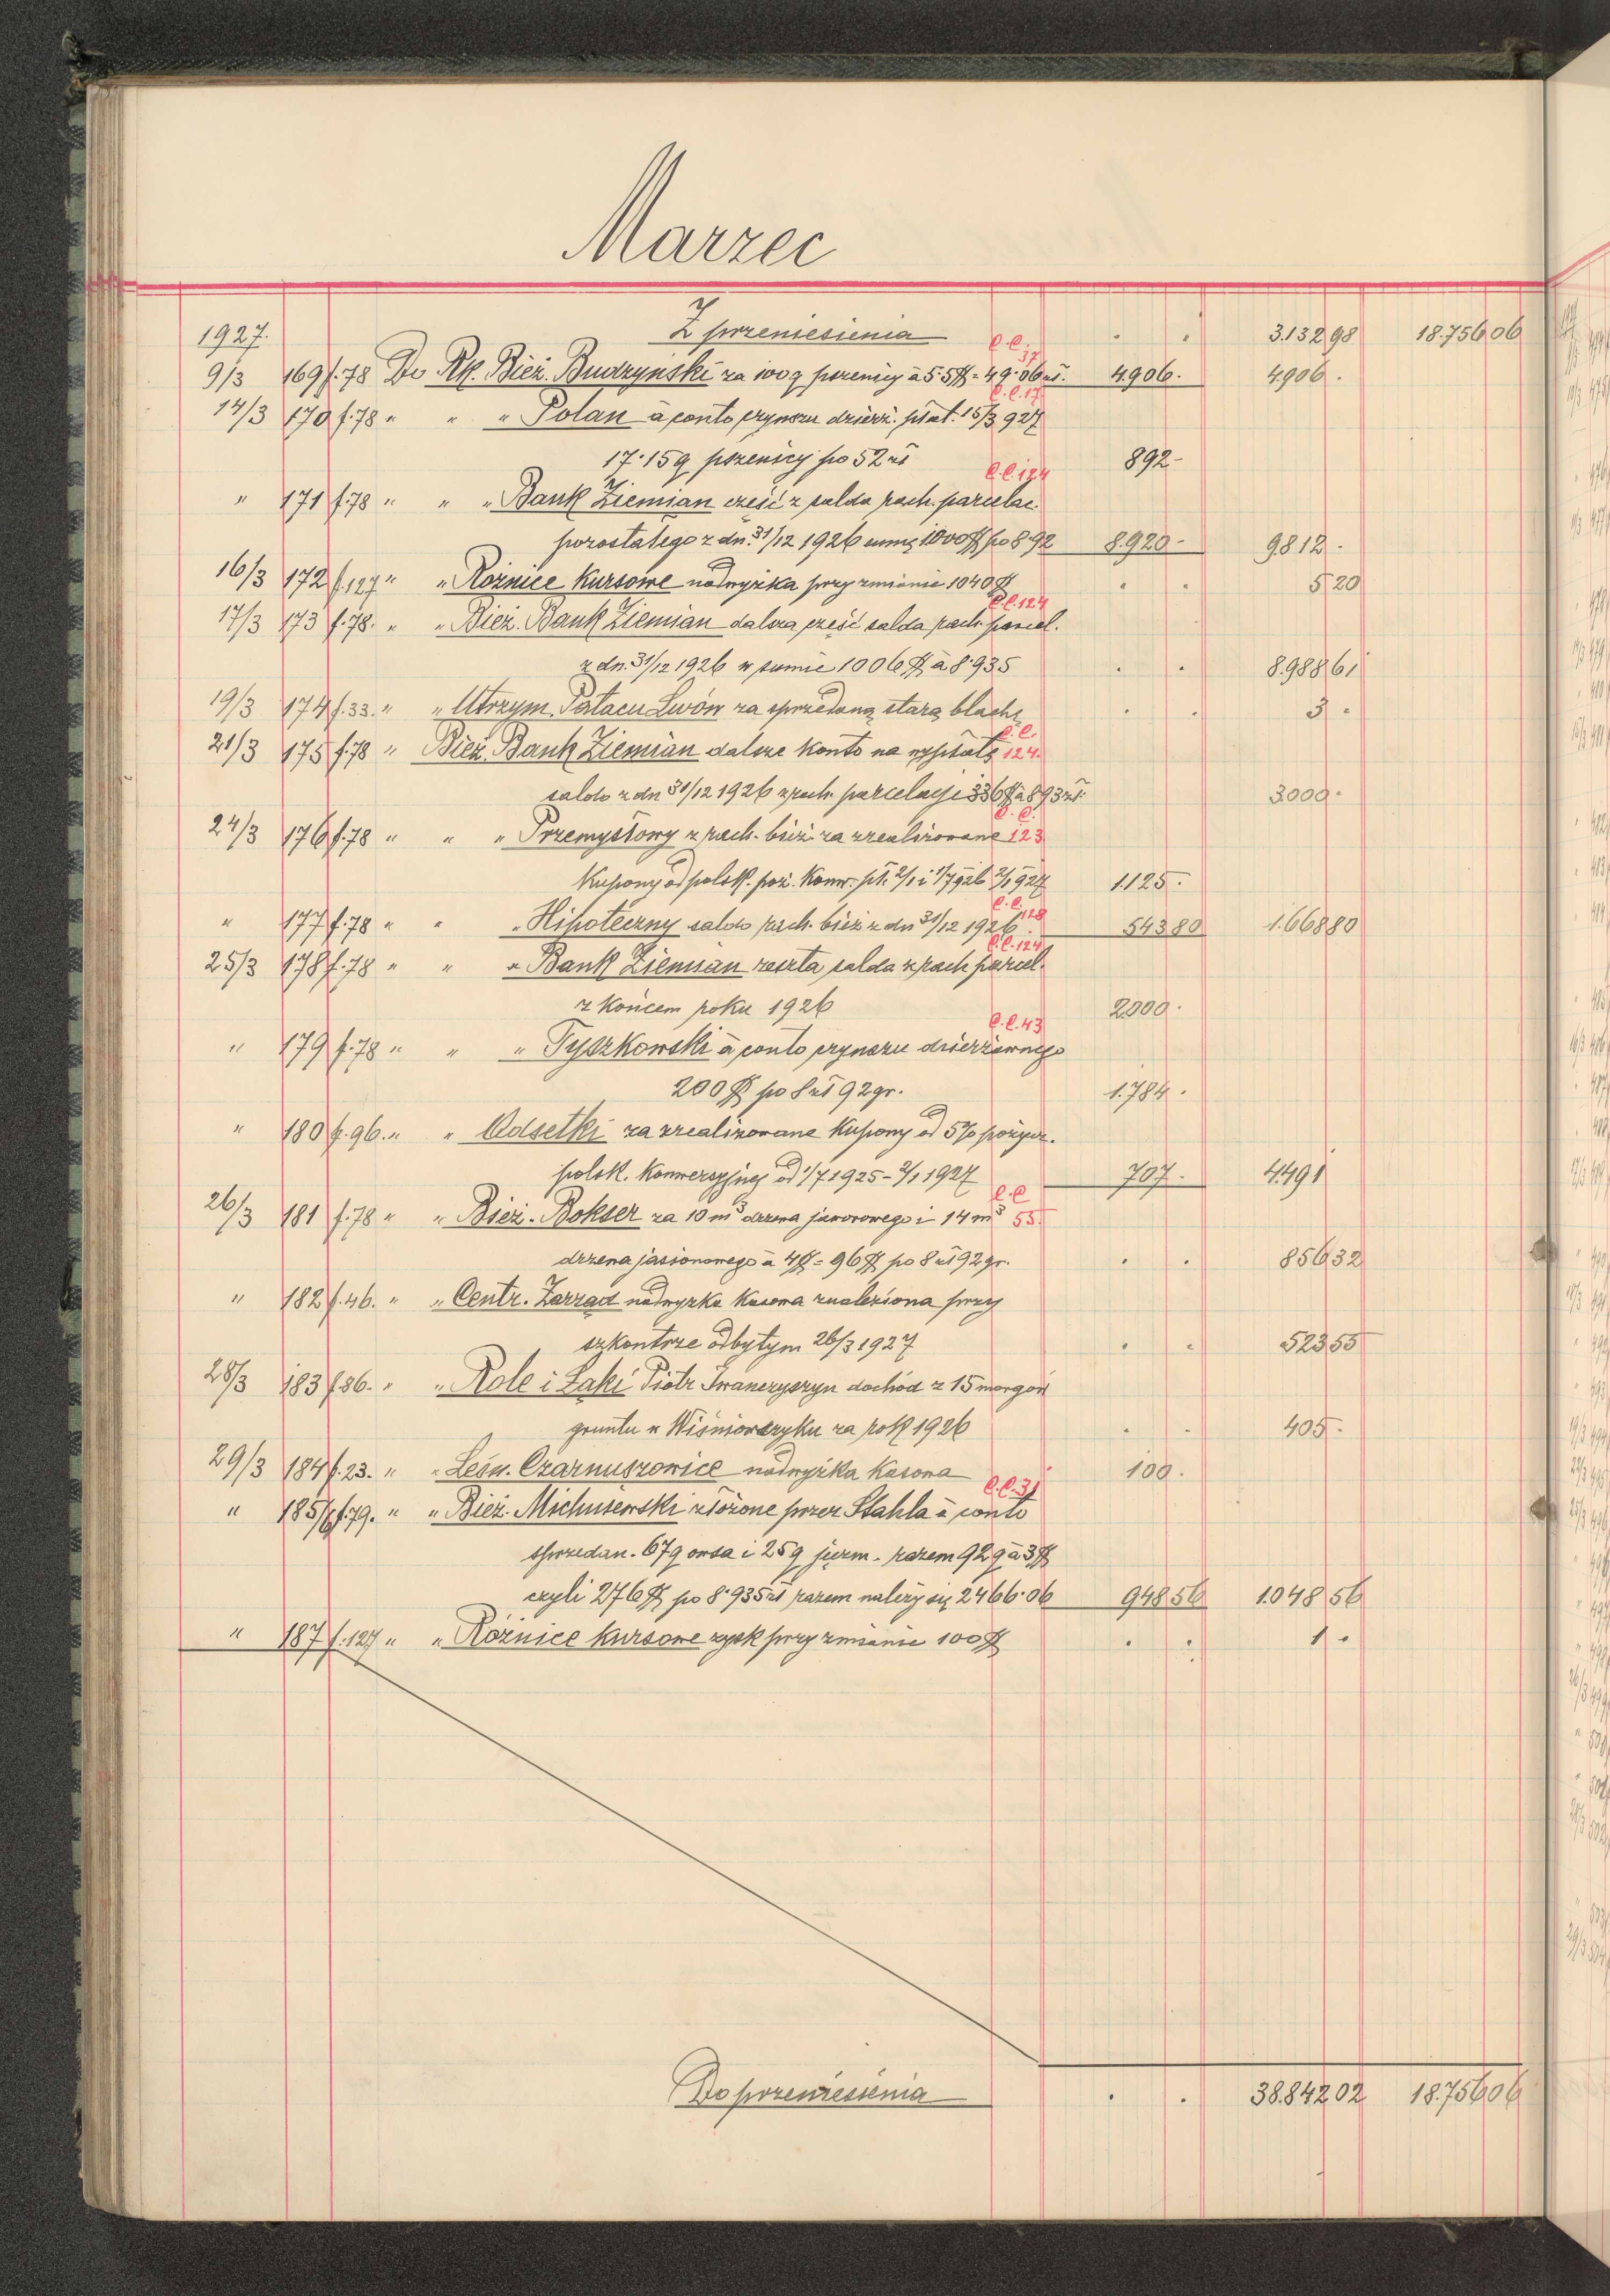 Marzec
1927. Z przeniesienia C.C. . . 3.132 98 18.756 06
9/3 169 f.78 Do Rk. Bież. Budzyński za 100 q pszenicy à 5·5 $ = 49·06 zł. 37 4.906. 4.906.
14/3 170 f.78 " " " Polan à conto czynszu dzierż. płat. 15/3 927 C.C.17
17·15q pszenicy po 52 zł 892-
" 171 f.78 " " " Bank Ziemian część z salda rach. parcelac. C.C.124
pozostałego z dn. 31/12 1926 sumę 1000 $ po 8·92 8.920- 9.812.
16/3 172 f.127 " " Różnice Kursowe nadwyżka przy zmianie 1040 $ . . 5 20
17/3 173 f.78. " " Bież. Bank Ziemian dalsza część salda rach. parcel. C.C.124
z dn. 31/12 1926 w sumie 1006 $ à 8·935 . . 8.988 61
19/3 174 f.33. " " Utrzym. Pałacu Lwów za sprzedaną starą blachę . . 3 .
21/3 175 f.78 " Bież. Bank Ziemian dalsze konto na wypłatę C.C. 124.
saldo z dn 31/12 1926 z rach. parcelacji 336 $ à 8 93 zł. 3.000.
24/3 176 f.78 " " " Przemysłowy z rach. bież. za zrealizowane C.C. 123
Kupony od polsk. poż. Konw. pł. 2/1 i 1/7 926 2/1 927 1.125.
" 177 f.78 " " " Hipoteczny saldo rach. bież z dn 31/12 1926 C.C. 128 543 80 1.668 80
25/3 178 f.78 " " " Bank Ziemian reszta salda z rach parcel. C.C.124
z Końcem roku 1926 2.000.
" 179 f.78 " " " Tyszkowski à conto czynszu dzierżawnego C.C.43
200 $ po 8 zł 92 gr. 1.784.
" 180 f.96. " " Odsetki za zrealizowane Kupony od 5% pożycz.
polsk. Konwersyjnej od 1/7 1925 - 2/1 1927 707. 4.491
26/3 181 f.78 " " Bież. Bokser za 10 m³ drzewa jaworowego i 14 m³ C.C 55.
drzewa jasionowego à 4 $ = 96 $ po 8 zł 92 gr. . . 856 32
" 182 f.46. " " Centr. Zarząd nadwyżka Kasowa znaleziona przy
szkontrze odbytym 26/3 1927 . . 523 55
28/3 183 f.86. " " Role i Łąki Piotr Iwanczyszyn dochód z 15 morgów
gruntu w Wiśniowczyku za rok 1926 . . 405.
29/3 184 f.23. " " Leśn. Czarnuszowice nadwyżka Kasowa 100.
" 185/6 f.79. " " Bież. Michniewski złożone przez Stahla à conto C.C.31
sprzedan. 67 q owsa i 25 q jęczm. razem 92 q à 3 $
czyli 276 $ po 8·935 zł razem należy się 2466·06 948 56 1.048 56
" 187 f.127 " " Różnice kursowe zysk przy zmianie 100 $ . . 1 .
Do przeniesienia . . 38.842 02 18.756 06